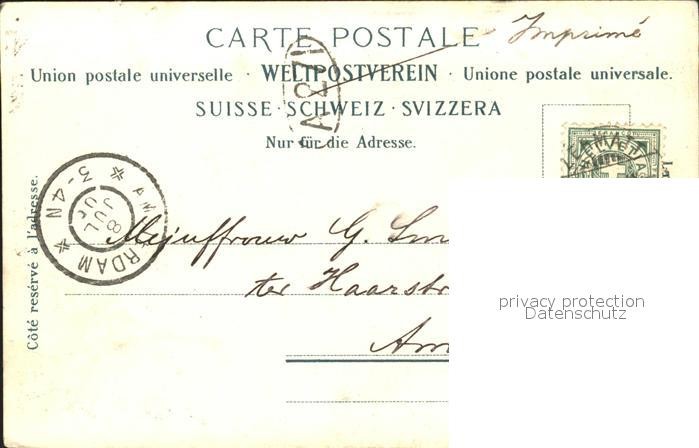 CARTE POSTALE Imprimé
Union postale universelle · WELTPOSTVEREIN · Unione postale universale.
A27
SUISSE · SCHWEIZ · SVIZZERA
Nur für die Adresse.
HELVETIA
Côté reservé à l'adresse.
AM RDAM 3-4N
8 JUL
Mejuffrouw G. Sm
ter Haarstr
Am
privacy protection
Datenschutz